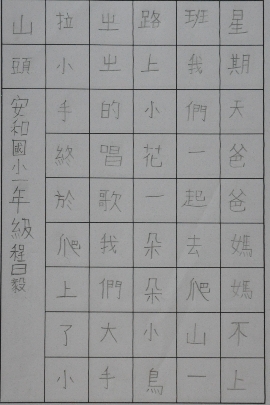 星期天爸爸媽媽不上
班我們一起去爬山一
路上小花一朵朵小鳥
出出的唱歌我們大手
拉小手終於爬上了小
山頭
安和國小一年級程曰毅